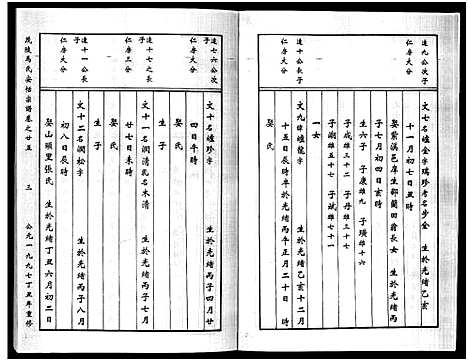 達九公次子
仁房大分
文七名嬑金字瑞珍考名步金　生於光緒乙亥
十一月初七日丑時
娶紫溪邑庠生鄒蘭田翁長女　生於光緒丙
子七月初四日亥時
生六子　子康雄九　子璜雄十六
子成雄三十二　子丹雄三十七
子湖雄五十七　子斌雄七十一
一女
文九　字　生於光緒乙亥十二月
十五日辰時　卒於光緒丙午正月二十日　時
娶　氏
達七六公次子
仁房大分
文十名　珍字　生於光緒丙子四月廿
四日午時
娶　氏
生子
達十七之長子
仁房三分
文十一名澗清乳名木清　生於光緒丙子七月
廿七日未時
娶　氏
生子
達十一公長子
仁房大分
文十二名澗松字　生於光緒丙子八月
初八日辰時
娶山頭里張氏　生於光緒丁丑六月初二日
茂陵馬氏安恬宗譜卷之廿五　三　公元一九九七丁丑年重修